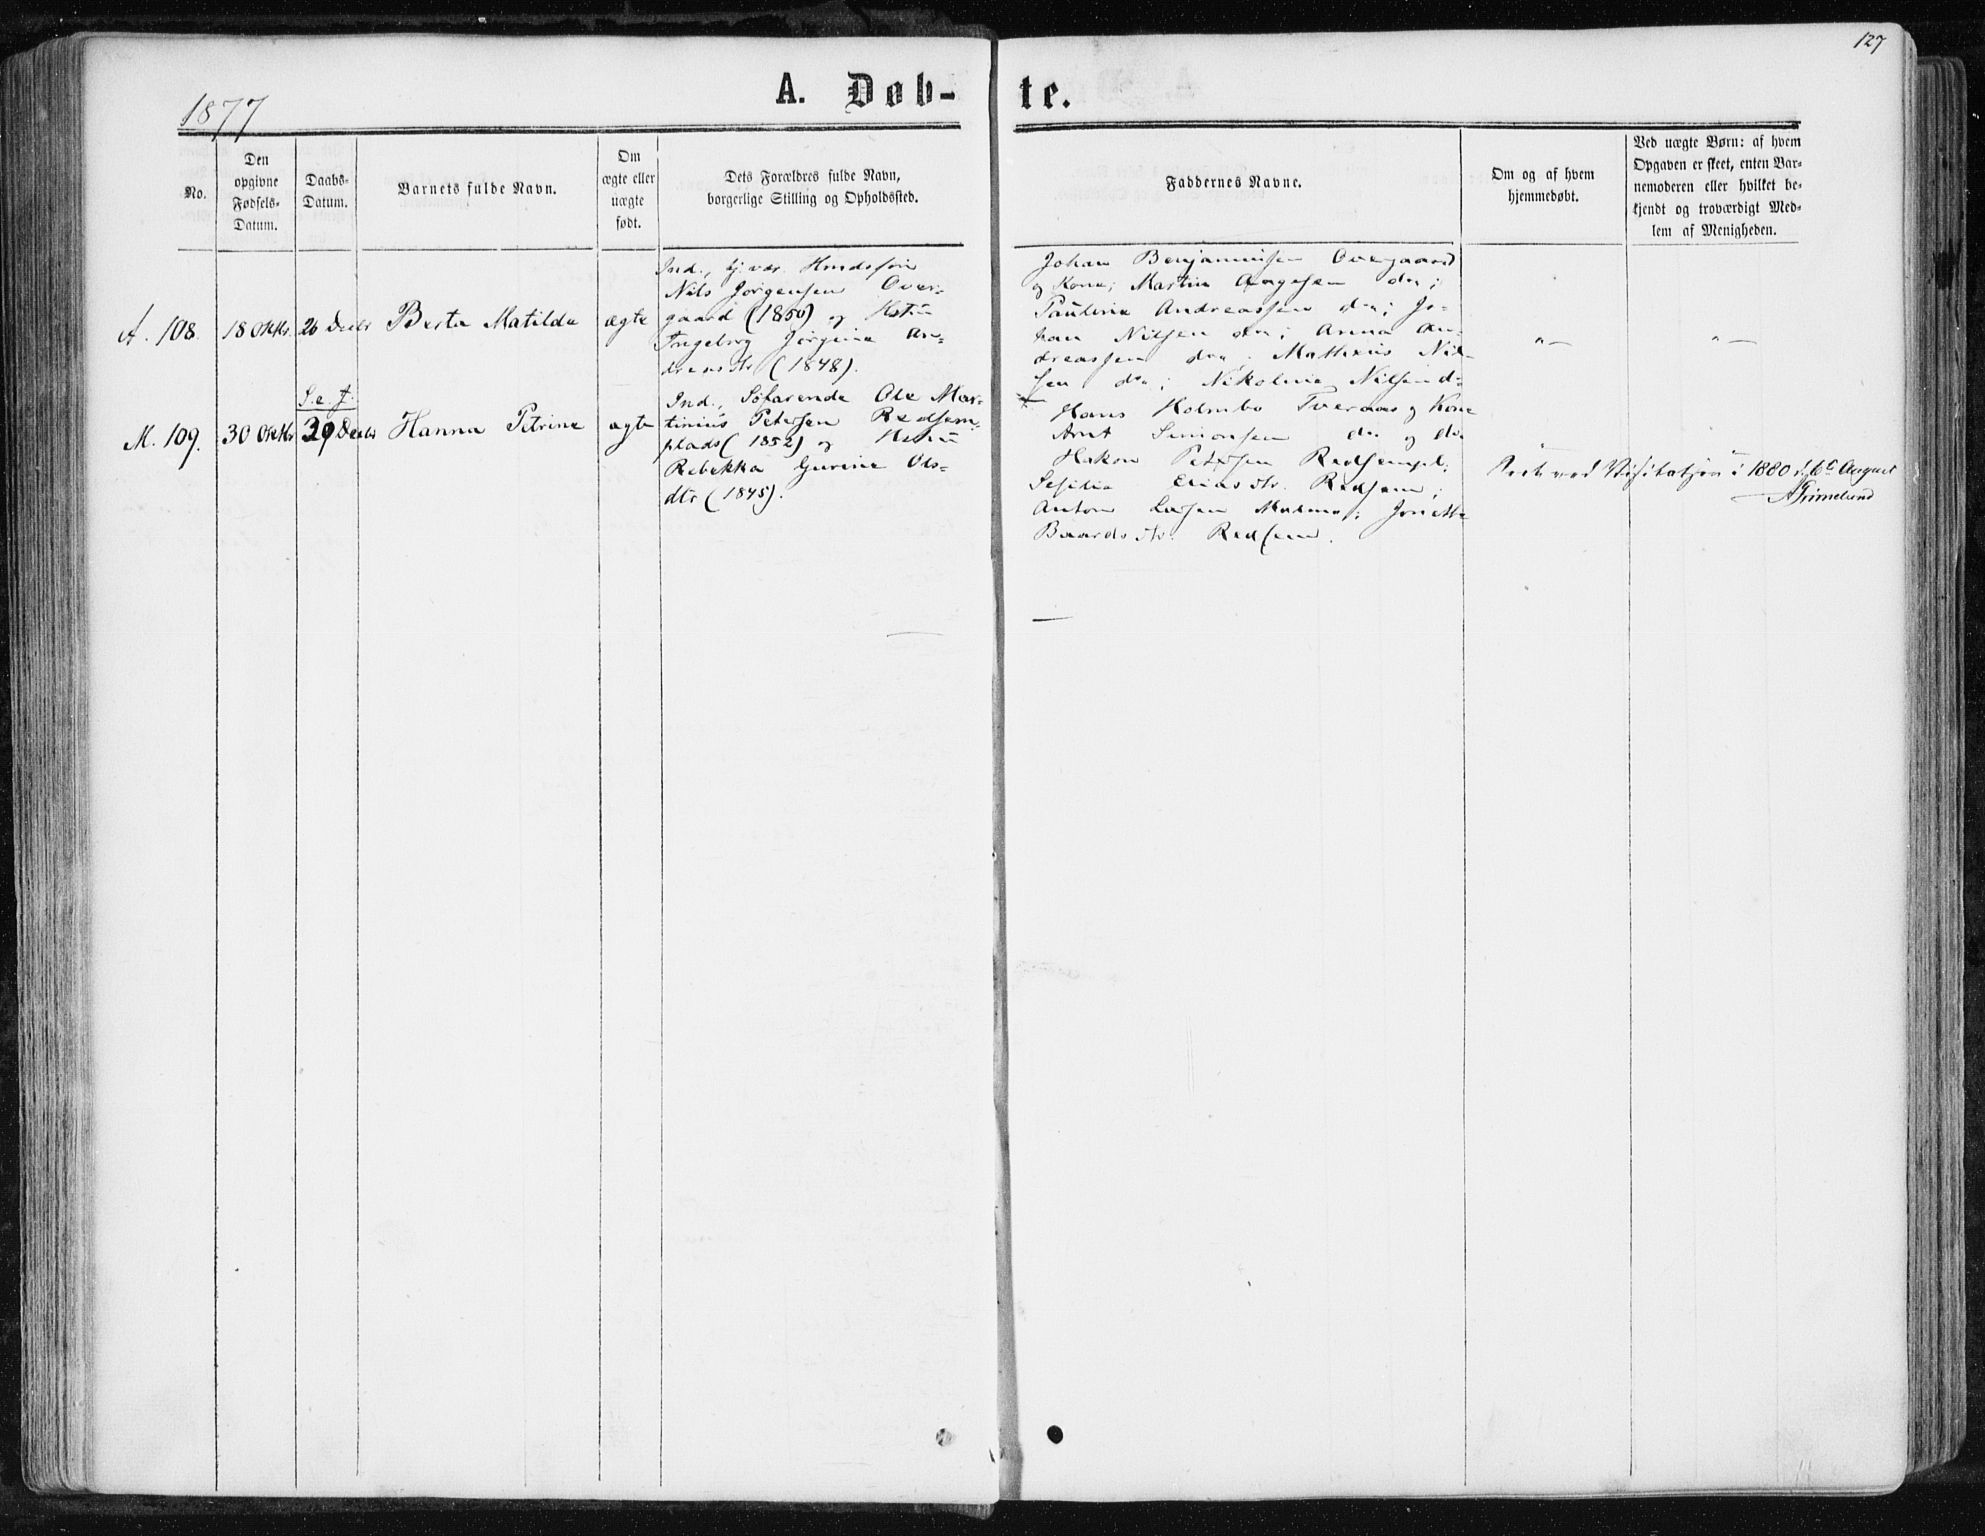 127
1877
A. Døb-
te.
No.
Den
opgivne
Fødsels-
Datum.
Daabs-
Datum.
Barnets fulde Navn.
Om
ægte eller
uægte
født.
Dets Forældres fulde Navn,
borgerlige Stilling og Opholdssted.
Faddernes Navne.
Om og af hvem
hjemmedøbt.
Ved uægte Børn: af hvem
Opgaven er skeet, enten Bar-
nemoderen eller hvilket be-
kjendt og troværdigt Med-
lem af Menigheden.
A. 108. 18 Oktbr. 26 Decbr Berta Matilde ægte
Ind.,
Nils Jørgensen Over-
gaard (1850) og Hstu
Ingeborg Jørgine An-
dreasdtr (1848).
Johan Benjaminsen Overgaard
og Kone; Martin Aagesen do;
Pauline Andreassen do; Jo-
han Nilsen do; Anna An-
dreassen do; Mathius Nil-
sen do; Nikoline Nilsen do
"— "—
S. e. J.
M. 109. 30 Oktbr 30 Decbr Hanna Petrine ægte
Ind., Søfarende Ole Mar-
tinius Petersen Redsem-
plads (1852) og Hstu
Rebekka Gurine Ols-
dtr (1845).
Hans Holmbo Tveraas og Kone
Arnt Simonsen do og do
Hakon Petersen Redsempl;
Sesilia Eliasdtr. Redsem;
Anton Malmo; Jonette
Baardsdtr. Redsem.
ved Visitatsen i 1880 d. 6te August
AGrimelund